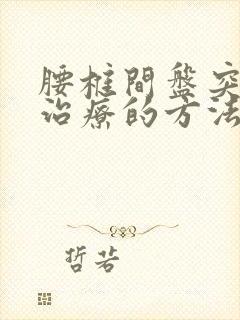 腰椎間盤突
治療的方法
哲若